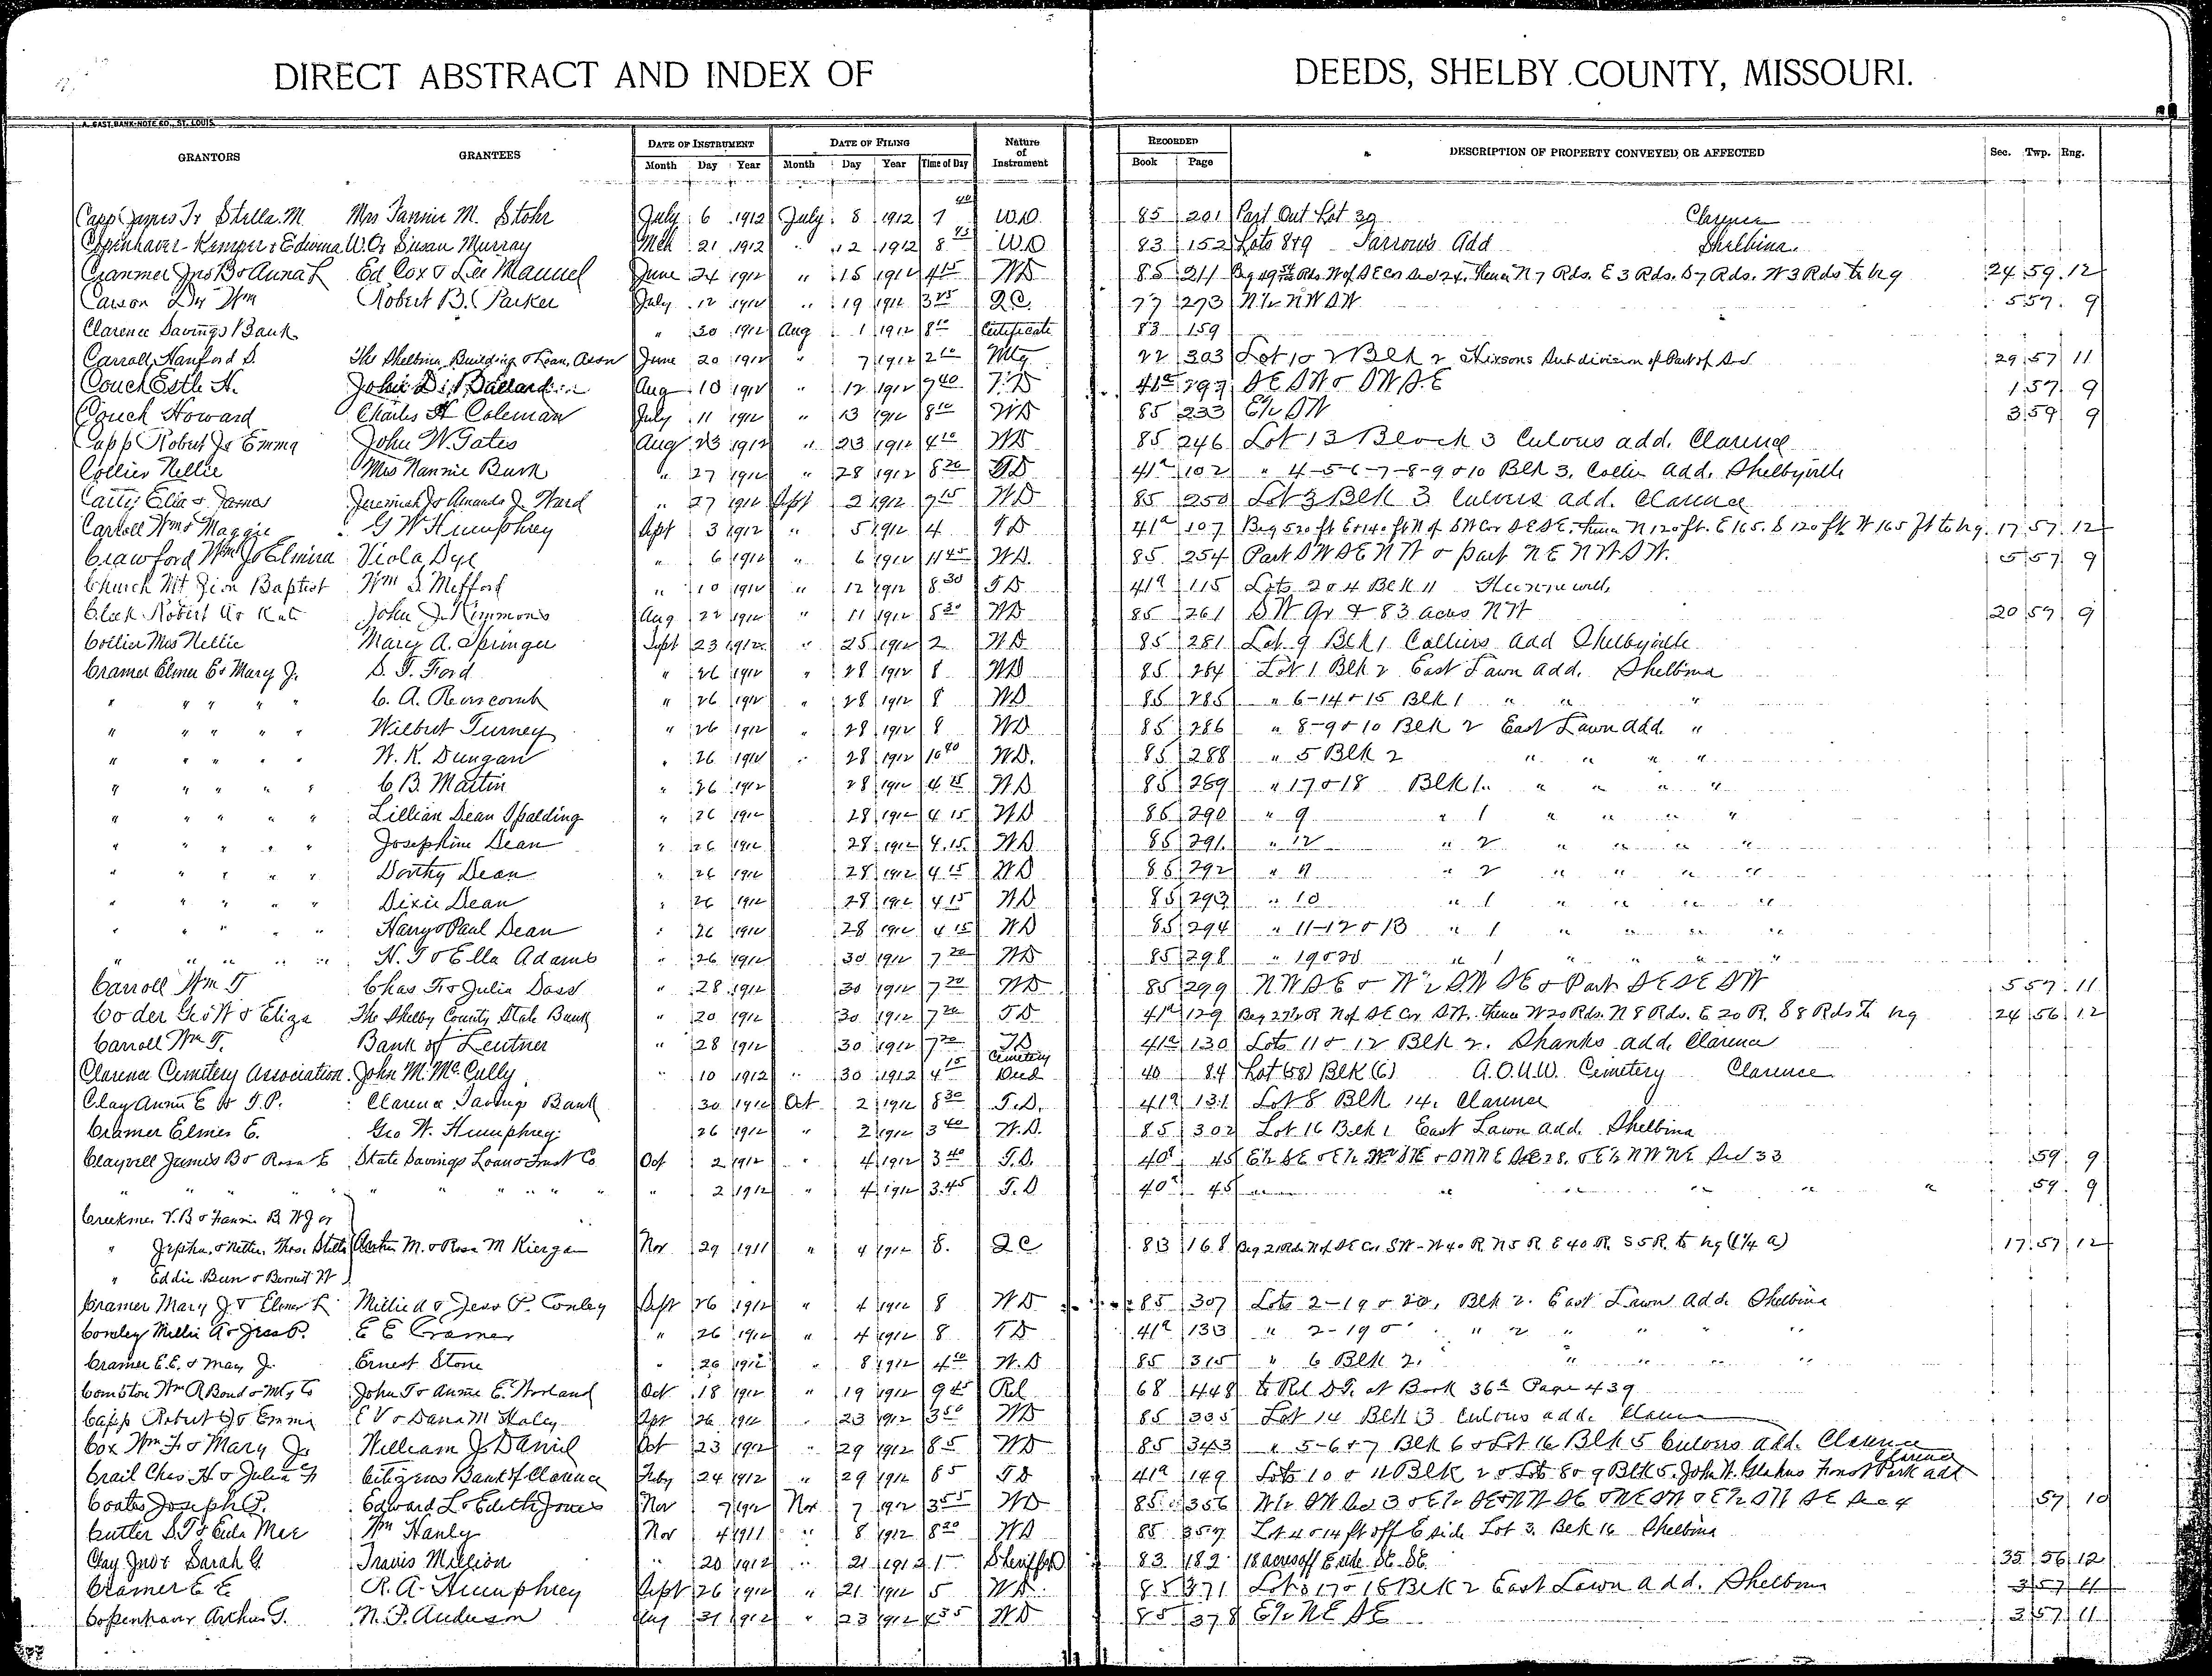 DIRECT ABSTRACT AND INDEX OF DEEDS, SHELBY COUNTY, MISSOURI.
A. GAST BANK-NOTE CO., ST. LOUIS.
GRANTORS GRANTEES DATE OF INSTRUMENT DATE OF FILING Nature of Instrument RECORDED DESCRIPTION OF PROPERTY CONVEYED OR AFFECTED Sec. Twp. Rng.
Month Day Year Month Day Year Time of Day Book Page
Capp James Jr Stella M. Mrs Fannie M. Stohr July 6 1912 July 8 1912 7 40 W.D. 85 201 Part Out Lot 39 Clarence
Copenhaver Kemper & Edwina W.O & Susan Murray Mch 21 1912 " 12 1912 8 45 W.D 83 152 Lots 8&9 Farrows Add Shelbina.
Cranmer Jno B & Anna L Ed Cox & Lee Manuel June 24 1912 " 15 1912 4 15 WD 85 211 Rds. W of SE Cor Sec 24, thence N 7 Rds. E 3 Rds. S 7 Rds. W 3 Rds to bg 24 59 12
Carson Wm Robert B. Parker July 12 1912 " 19 1912 3 25 Q.C. 77 273 N½ NW SW 5 57 9
Clarence Savings Bank " 30 1912 Aug 1 1912 8 10 Certificate 83 159
Carroll Hanford S. The Shelbina Building & Loan Assn June 20 1912 " 7 1912 2 10 Mtg 22 303 Lot 10 Blk 2 Hixsons Subdivision of Part of 29 57 11
Couch Estle H. John D. Ballard Aug 10 1912 " 12 1912 9 40 T.D 41a SE SW & SW SE 1 57 9
Couch Howard Charles H Coleman July 11 1912 " 13 1912 8 10 WD 85 233 E½ SW 3 59 9
Capp Robert J & Emma John W. Gates Aug 23 1912 " 23 1912 4 10 WD 85 246 Lot 13 Block 3 Culvers add. Clarence
Collier Nellie Mrs Nannie Bush " 27 1912 " 28 1912 8 20 TD 41a 102 " 4-5-6-7-8-9 & 10 Blk 3, Collier Add, Shelbyville
Carty Eliza & James Jeremiah J & Amanda J. Ward " 27 1912 Sept 2 1912 9 15 WD 85 250 Lot 3 Blk 3 Culvers add. Clarence
Carroll Wm & Maggie G W Humphrey Sept 3 1912 " 5 1912 4 TD 41a 107 Beg 520 ft E & 140 ft N of SW Cor SE SE. thence N 120 ft. E 165. S 120 ft. W 165 ft to bg. 17 57 12
Crawford Wm J & Elmira Viola Dye " 6 1912 " 6 1912 11 45 WD. 85 254 Part SW SE NW & part NE NW SW. 5 57 9
Church Mt Zion Baptist Wm S Mefford " 10 1912 " 12 1912 8 30 TD 41a 115 Lots 2 & 4 Blk 11 Hunnewell
Cleek Robert A & Kate John J. Kimmons Aug 22 1912 " 11 1912 8 30 WD 85 261 SW Qr & 83 acres NW 20 59 9
Collier Mrs Nellie Mary A. Springer Sept 23 1912 " 25 1912 2 WD 85 281 Lot 9 Blk 1 Colliers add Shelbyville
Cramer Elmer E & Mary J. S. T. Ford " 26 1912 " 28 1912 8 WD 85 284 Lot 1 Blk 2 East Lawn add. Shelbina
" " " " " C. A. " 26 1912 " 28 1912 8 WD 85 285 " 6-14 & 15 Blk 1 " " "
" " " " " Wilbut Turney " 26 1912 " 28 1912 8 WD 85 286 " 8-9 & 10 Blk 2 East Lawn add. "
" " " " " W. K. Dungan " 26 1912 " 28 1912 10 40 WD. 85 288 " 5 Blk 2 " " " "
" " " " " C B. Martin " 26 1912 28 1912 4 15 WD 85 289 " 17 & 18 Blk 1. " " " "
" " " " " Lillian Dean Spalding " 26 1912 28 1912 4 15 WD 85 290 " 9 " 1 " " " "
" " " " " Josephine Dean " 26 1912 28 1912 4.15 WD 85 291 " 12 " 2 " " " "
" " " " " Dorthy Dean " 26 1912 28 1912 4 15 WD 85 292 " 11 " 2 " " " "
" " " " " Dixie Dean " 26 1912 28 1912 4 15 WD 85 293 " 10 " 1 " " " "
" " " " " Harry & Paul Dean " 26 1912 28 1912 4 15 WD 85 294 " 11-12 & 13 " 1 " " " "
" " " " " H. T & Ella Adams " 26 1912 30 1912 7 20 WD 85 298 " 19 & 20 " 1 " " " "
Carroll Wm T Chas F & Julia Doss " 28 1912 30 1912 7 20 WD 85 299 NW SE & W½ SW SE & Part SE SE SW 5 57 11
Coder Geo W & Eliza The Shelby County State Bank " 20 1912 30 1912 7 20 TD 41a 129 Beg 27½ R N of SE Cor SW. thence W 20 Rds. N 8 Rds. E 20 R. S 8 Rds to bg 24 56 12
Carroll Wm T. Bank of Lentner " 28 1912 30 1912 7 20 TD 41a 130 Lots 11 & 12 Blk 2. Shanks add, Clarence
Clarence Cemetery Association. John M. McCully. " 10 1912 " 30 1912 4 15 Cemetery Deed 40 84 Lot (58) Blk (6) A.O.U.W. Cemetery Clarence
Clay Annie E & T.P. Clarence Savings Bank 30 1912 Oct 2 1912 8 30 T.D. 41a 131 Lot 8 Blk 14. Clarence
Cramer Elmer E. Geo W. Humphrey 26 1912 " 2 1912 3 40 W.D. 85 302 Lot 16 Blk 1 East Lawn add. Shelbina
Clayvell James B & Rosa E State Savings Loan & Trust Co Oct 2 1912 " 4 1912 3 40 T.D. 40a 45 E½ SE & E½ & E½ NW NE Sec 33 59 9
" " " " " " " " " " 2 1912 " 4 1912 3.45 T.D 40a 45 " " " " " 59 9
Creekmur V.B & Fannie B W J or
" Jeptha, & Nettie, Thos. Stella Austin M. & Rosa M Kiergan Nov 29 1911 " 4 1912 8. QC 83 168 Beg 21 Rds N of SE Cor SW - W 40 R. N 5 R E 40 R. S 5 R. to bg (1¼ a) 17 57 12
" Eddie Bun & Bernest W
Cramer Mary J & Elmer E Millie A & Jess P. Conley Sept 26 1912 " 4 1912 8 WD 85 307 Lots 2-19 & 20, Blk 2. East Lawn add. Shelbina
Conley Millie A & Jess P. E E Cramer " 26 1912 " 4 1912 8 TD 41a 133 " 2-19 & " " 2 " " " "
Cramer E.E. & May J. Ernest Stone " 26 1912 " 8 1912 4 W.D 85 315 " 6 Blk 2. " " " "
Compton Wm R Bond & Mtg Co John T & Annie E. Worland Oct 18 1912 " 19 1912 9 45 Rel 68 448 to Rel D.T. at Book 36a Page 439
Capp Robert J & Emma E V & Dana M Haley Sept 26 1912 " 23 1912 3 50 WD 85 335 Lot 14 Blk 3 Culvers add. Clarence
Cox Wm F & Mary J. William J. Daniel Oct 23 1912 " 29 1912 8 5 WD 85 343 " 5-6 & 7 Blk 6 & Lot 16 Blk 5 Culvers add. Clarence
Crail Chas H & Julia F Citizens Bank of Clarence July 24 1912 " 29 1912 8 5 TD 41a 149 Lots 10 & 11 Blk 2 & Lots 8 & 9 Blk 5. John W. Forest Park add Clarence
Coates Joseph P. Edward L & Edith Jones Nov 7 1912 Nov 7 1912 3 55 WD 85 356 W½ SW Sec 3 & E½ SE & NW SE & NE SW & E½ SW SE Sec 4 57 10
Cutler S.T & Eula Mee Wm Hanly Nov 4 1911 " 8 1912 8 20 WD 85 357 Lot 4 & 14 ft off E side Lot 3. Blk 16 Shelbina
Clay Jno & Sarah G. Travis Million " 20 1912 " 21 1912 1 Sheriff D 83 182 18 acres off E side SE SE. 35 56 12
Cramer E E R. A. Humphrey Sept 26 1912 " 21 1912 5 WD. 85 371 Lots 17 & 18 Blk 2 East Lawn add. Shelbina 3 57 11
Copenhaver Arthur T. N. P. Anderson Aug 31 1912 " 23 1912 4 35 WD 85 378 E½ NE SE 3 57 11